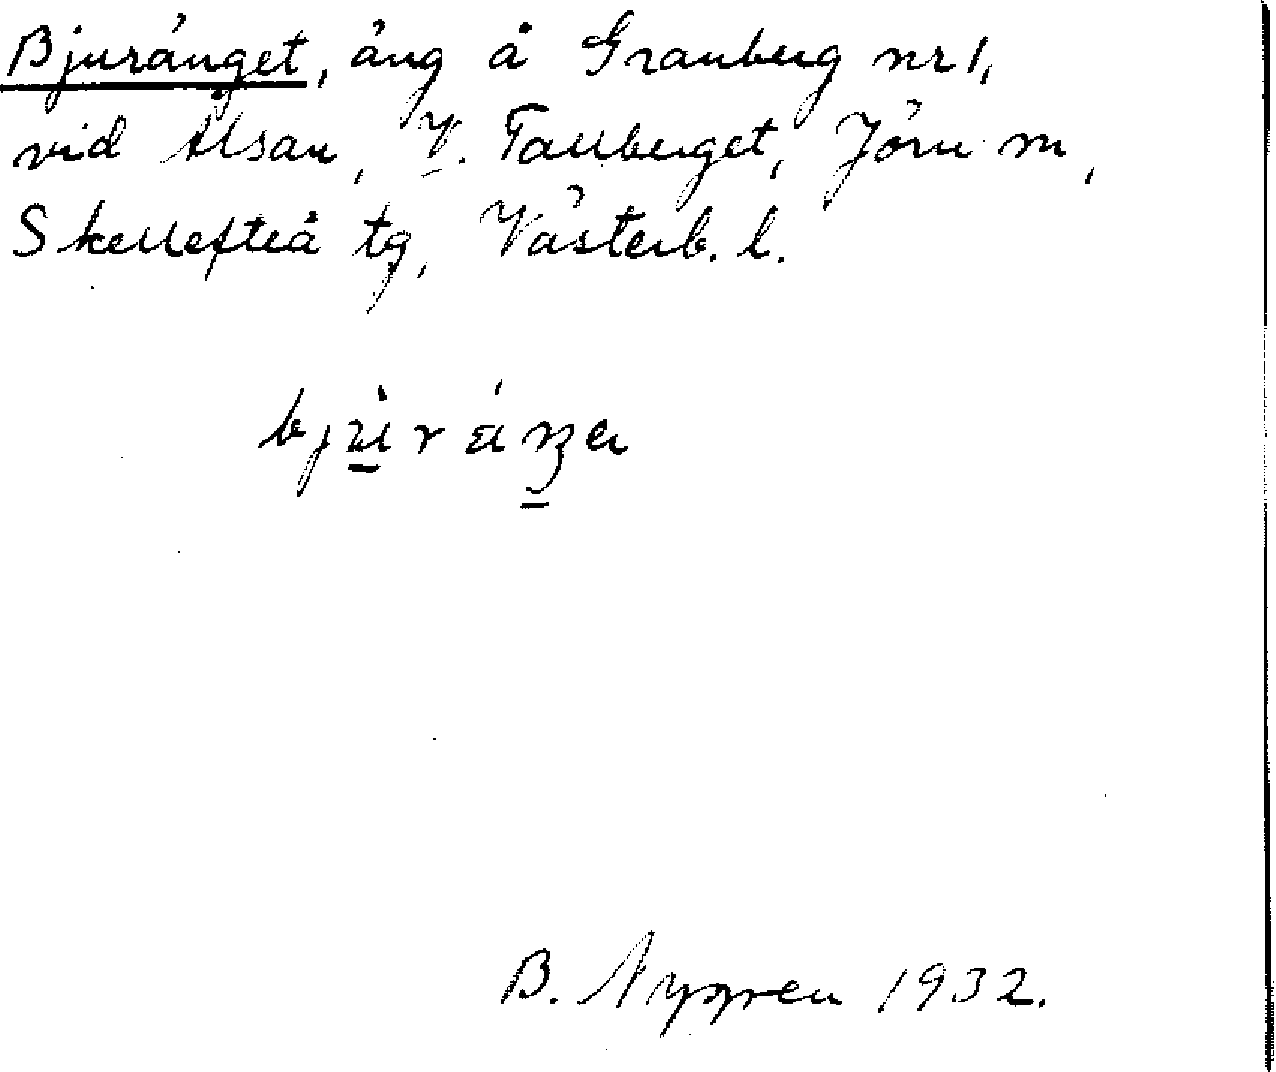 Bjuränget, äng å Granberg nr 1,
vid Ålsan, V. Tallberget, Jörn sn,
Skellefteå tg, Västerb. l.
bju̲̇räŋ̲a
B. Nygren 1932.